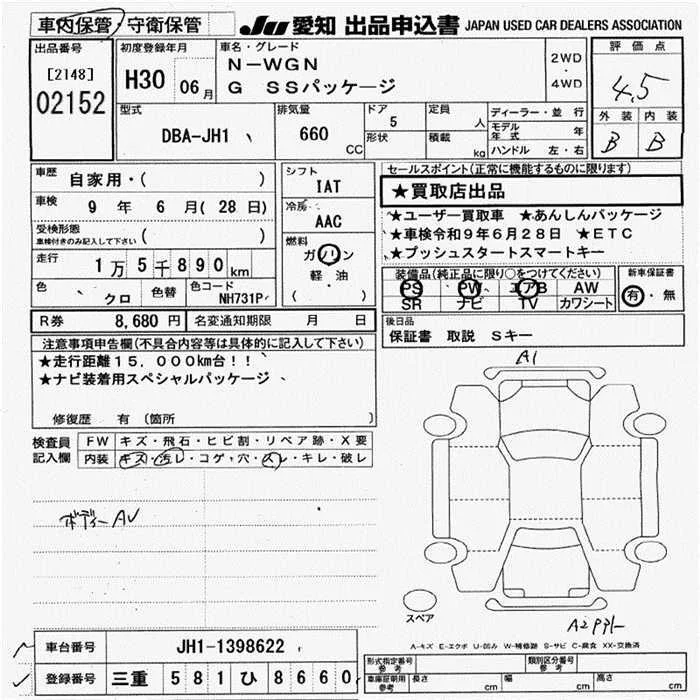 車内保管・守衛保管 JU 愛知 出品申込書 JAPAN USED CAR DEALERS ASSOCIATION
出品番号 初度登録年月 車名・グレード 評価点
[2148] H30 06月 N-WGN 2WD・4WD 4.5
02152 G SSパッケージ
型式 排気量 ドア 定員 ディーラー・並行 外装 内装
DBA-JH1 660CC 5 人 モデル年式 年 B B
形状 積載 kg ハンドル 左・右
車歴 自家用・( ) シフト セールスポイント(正常に機能するものに限ります)
車検 9年 6月(28日) IAT ★買取店出品
受検形態 冷房 ★ユーザー買取車 ★あんしんパッケージ
車検付きのみ記入して下さい ( ) AAC ★車検令和9年6月28日 ★ETC
走行 1万5千890km 燃料 ★プッシュスタートスマートキー
ガソリン 装備品(純正品に限り○をつけてください) 新車保証書
色 クロ 色替 色コード NH731P 軽・油 PS PW エアB AW 有・無
( ) SR ナビ TV カワシート
R券 8,680円 名変通知期限 月 日 後日品
保証書 取説 Sキー
注意事項申告欄(不具合内容等は具体的に記入して下さい)
★走行距離15,000km台!!
★ナビ装着用スペシャルパッケージ
修復歴 有 (箇所 )
A1
検査員 FW キズ・飛石・ヒビ割・リペア跡・X要
記入欄 内装 キズ・汚レ・コゲ・穴・スレ・キレ・破レ
ボディーAU
スペア
A-キズ E-エクボ U-凹み W-補修跡 S-サビ C-腐食 XX-交換済
車台番号 JH1-1398622 形式指定番号 参考 類別区分番号 参考
登録番号 三重 581 ひ 8660 車庫証明用 参考 長さ cm 幅 cm 高さ cm